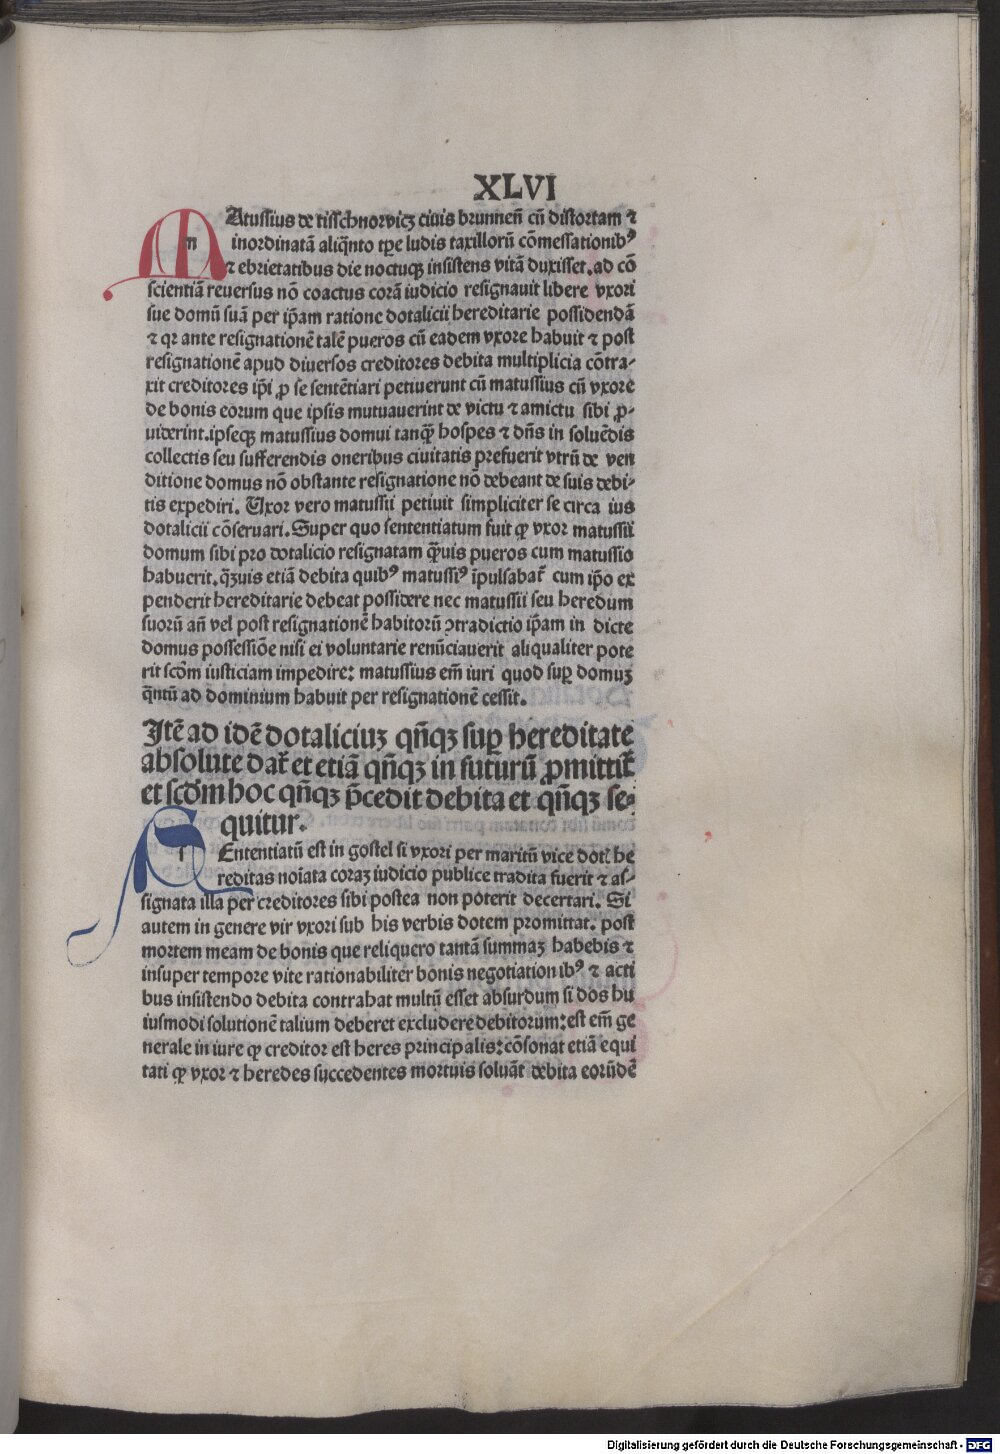 XLVI
MAtussius de tisschnorvicz ciuis brunneñ cũ distortam ⁊
inordinatã aliq̃nto tꝑe ludis taxillorũ cõmessationibꝰ
⁊ ebrietatibus die noctuqꝫ insistens vitã duxisset. ad cõ
scientiã reuersus nõ coactus corã iudicio resignauit libere vxori
sue domũ suã per ip̃am ratione dotalicii hereditarie possidendã
⁊ qr ante resignationẽ talẽ pueros cũ eadem vxore habuit ⁊ post
resignationẽ apud diuersos creditores debita multiplicia cõtra⸗
xit creditores ip̃i ꝓ se sentẽtiari petiuerunt cũ matussius cũ vxore
de bonis eorum que ipsis mutuauerint de victu ⁊ amictu sibi ꝓ⸗
uiderint. ipseqꝫ matussius domui tanqꝫ̃ hospes ⁊ dñs in soluẽdis
collectis seu sufferendis oneribus ciuitatis prefuerit vtrũ de ven
ditione domus nõ obstante resignatione nõ debeant de suis debi⸗
tis expediri. Uxor vero matussii petiuit simpliciter se circa ius
dotalicii cõseruari. Super quo sententiatum fuit ꝙ vxor matussii
domum sibi pro dotalicio resignatam qꝫ̃uis pueros cum matussio
habuerit. qꝫ̃uis etiã debita quibꝰ matussiꝰ ĩpulsabat̃ cum ip̃o ex
penderit hereditarie debeat possidere nec matussii seu heredum
suorũ añ vel post resignationẽ habitorũ ꝯtradictio ip̃am in dicte
domus possessiõe nisi ei voluntarie renũciauerit aliqualiter pote
rit scd̃m iusticiam impedire: matussius em̃ iuri quod suꝑ domuꝫ
q̃ntũ ad dominium habuit per resignationẽ cessit.
Itẽ ad idẽ dotaliciuꝫ qñqꝫ suꝑ hereditate
absolute dat̃ et etiã qñqꝫ in futurũ ꝓmittit̃
et scd̃m hoc qñqꝫ p̃cedit debita et qñqꝫ se⸗
quitur.
SEntentiatũ est in gostel si vxori per maritũ vice dot̃. he
reditas noĩata coraꝫ iudicio publice tradita fuerit ⁊ as⸗
signata illa per creditores sibi postea non poterit decertari. Si
autem in genere vir vxori sub his verbis dotem promittat. post
mortem meam de bonis que reliquero tantã summaꝫ habebis ⁊
insuper tempore vite rationabiliter bonis negotiationibꝰ ⁊ acti
bus insistendo debita contrahat multũ esset absurdum si dos hu
iusmodi solutionẽ talium deberet excludere debitorum: est em̃ ge
nerale in iure ꝙ creditor est heres principalis: cõsonat etiã equi
tati ꝙ vxor ⁊ heredes succedentes mortuis soluãt debita eorũdẽ
Digitalisierung gefördert durch die Deutsche Forschungsgemeinschaft - DFG